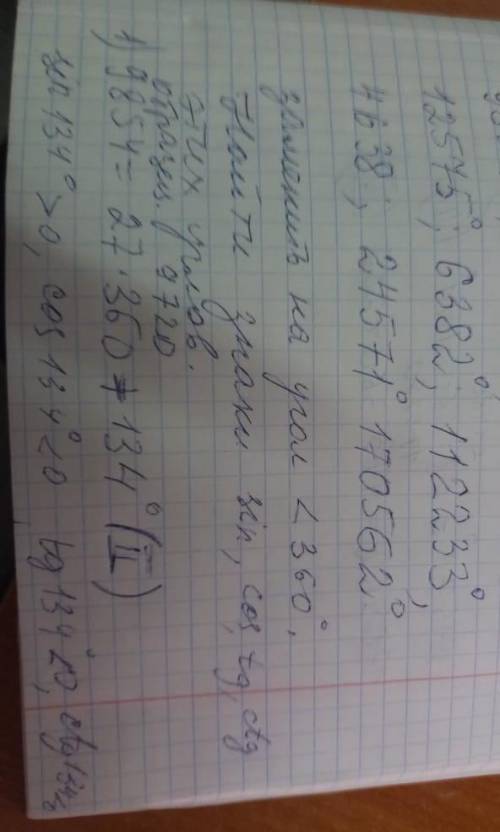 12575°; 6382°; 112233°,
4638°; 24571° 170562°.
заменить на угол < 360°,
Найти знаки sin, cos, tg, ctg
этих углов.
образец. 9720
1) 9854 = 27·360 + 134° (II)
sin 134° > 0, cos 134° < 0, tg 134° < 0, ctg 134°<